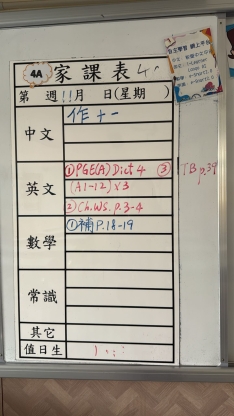 4A 家課表
第 週 11月 日(星期 )
中文 作十一
英文 ①PGE(A) Dict 4 ③ TB p.39
(A1-12) x3
② Ch.WS. p.3-4
數學 ①補P.18-19
常識
其它
值日生
自主學習 網上平台